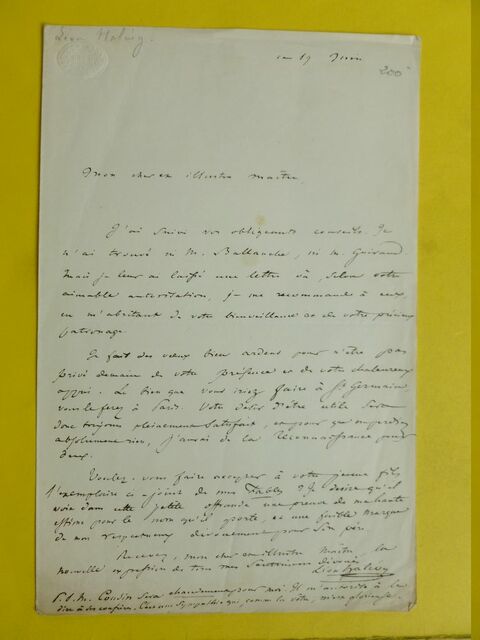 Leon Halevy.
ce 19 Juin
200
Mon cher et illustre maître,
J'ai suivi vos obligeants conseils. Je
n'ai trouvé ni M. Ballanche, ni M. Guiraud
mais je leur ai laissé une lettre où, selon votre
aimable autorisation, je me recommande à eux
en m'abritant de votre bienveillance et de votre précieux
patronage.
Je fais des vœux bien ardens pour n'être pas
privé demain de votre présence et de votre chaleureux
appui. Le bien que vous iriez faire à St Germain
vous le ferez à Paris. Votre désir d'être utile sera
donc toujours pleinement satisfait, et pour qu'on perde
absolument rien, j'aurai de la reconnaissance pour
deux.
Voulez-vous faire accepter à votre jeune fils
l'exemplaire ci-joint de mes Fables ? Je désire qu'il
voie dans cette petite offrande une preuve de ma haute
estime pour le nom qu'il porte, et une faible marque
de mon respectueux dévouement pour son père.
Recevez, mon cher et illustre maître, la
nouvelle expression de tous mes sentimens dévoués
Leon Halevy
P.S. M. Cousin sera chaudement pour moi. Il m'autorise à le
dire à ses confrères. C'est une sympathie qui, comme la vôtre, m'est glorieuse.